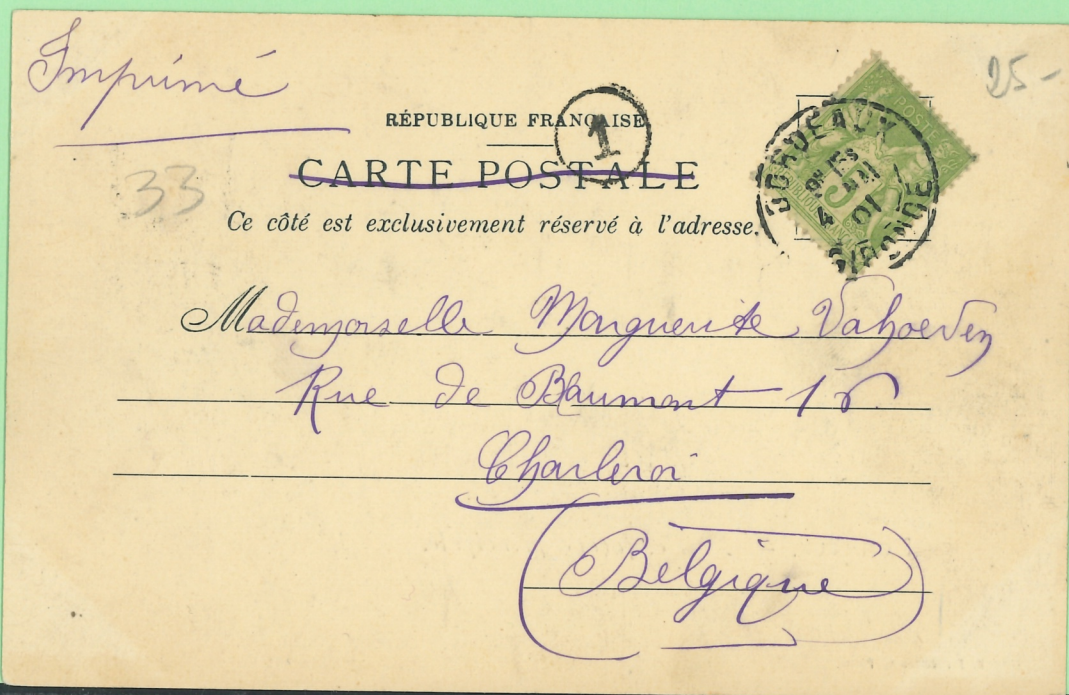 Imprimé
25-
RÉPUBLIQUE FRANÇAISE
1
CARTE POSTALE
33
Ce côté est exclusivement réservé à l'adresse.
BORDEAUX
4
01
GIRONDE
POSTES
5
Mademoiselle Marguerite Vahoeven
Rue de Baumont 16
Charleroi
Belgique